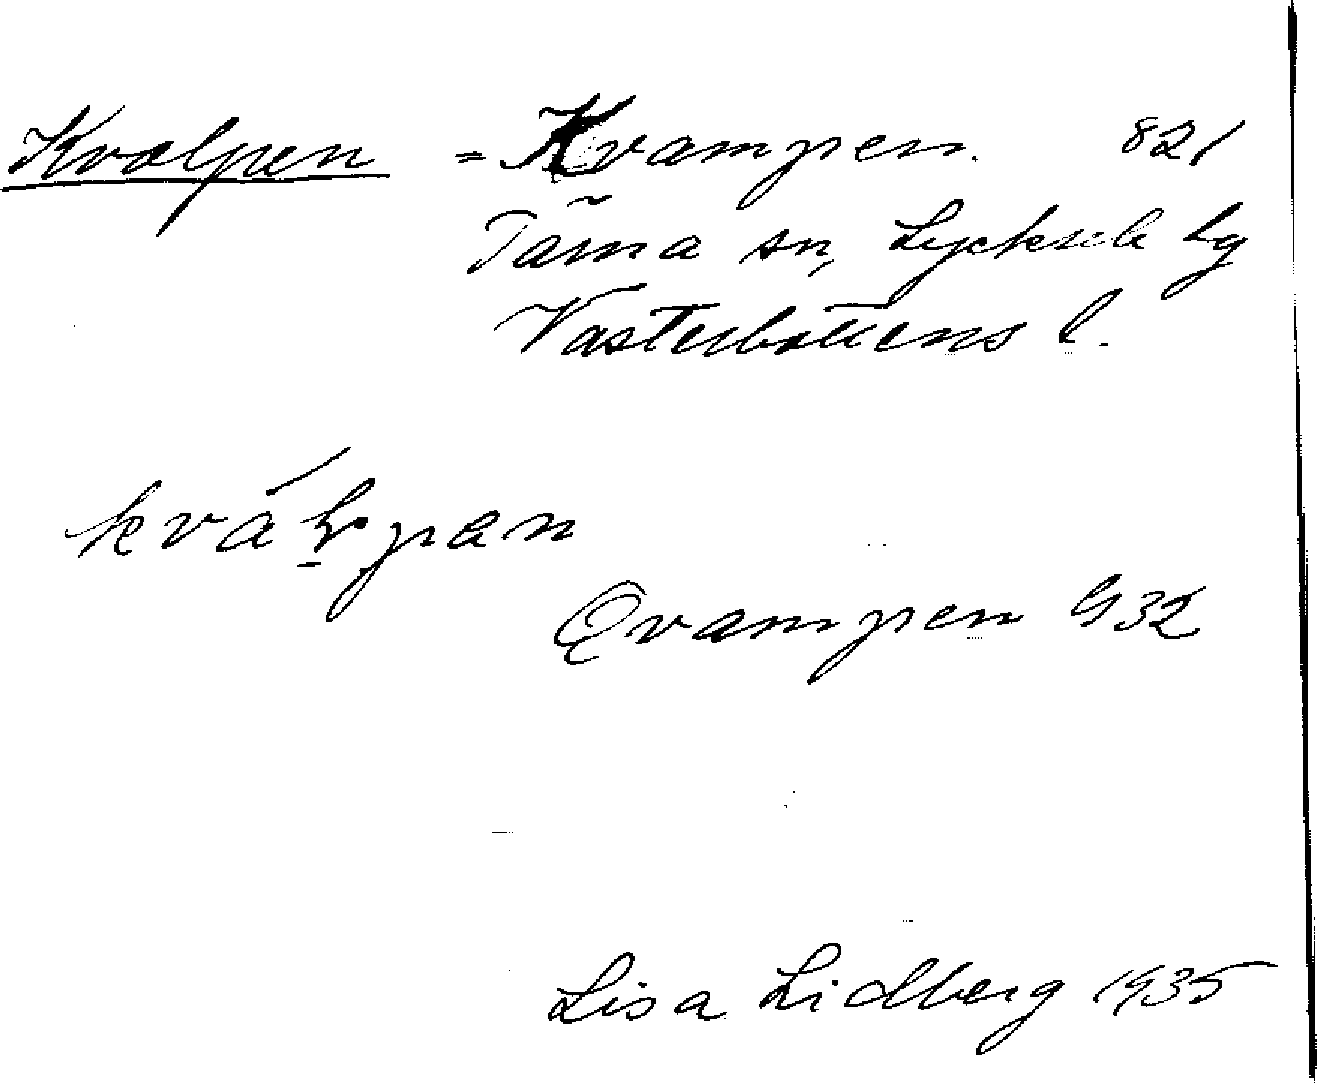 Kvalpen = Kvampen. 821
Tärna sn, Lycksele lg
Västerbottens l.
Qvampen G32
Lisa Lidberg 1935